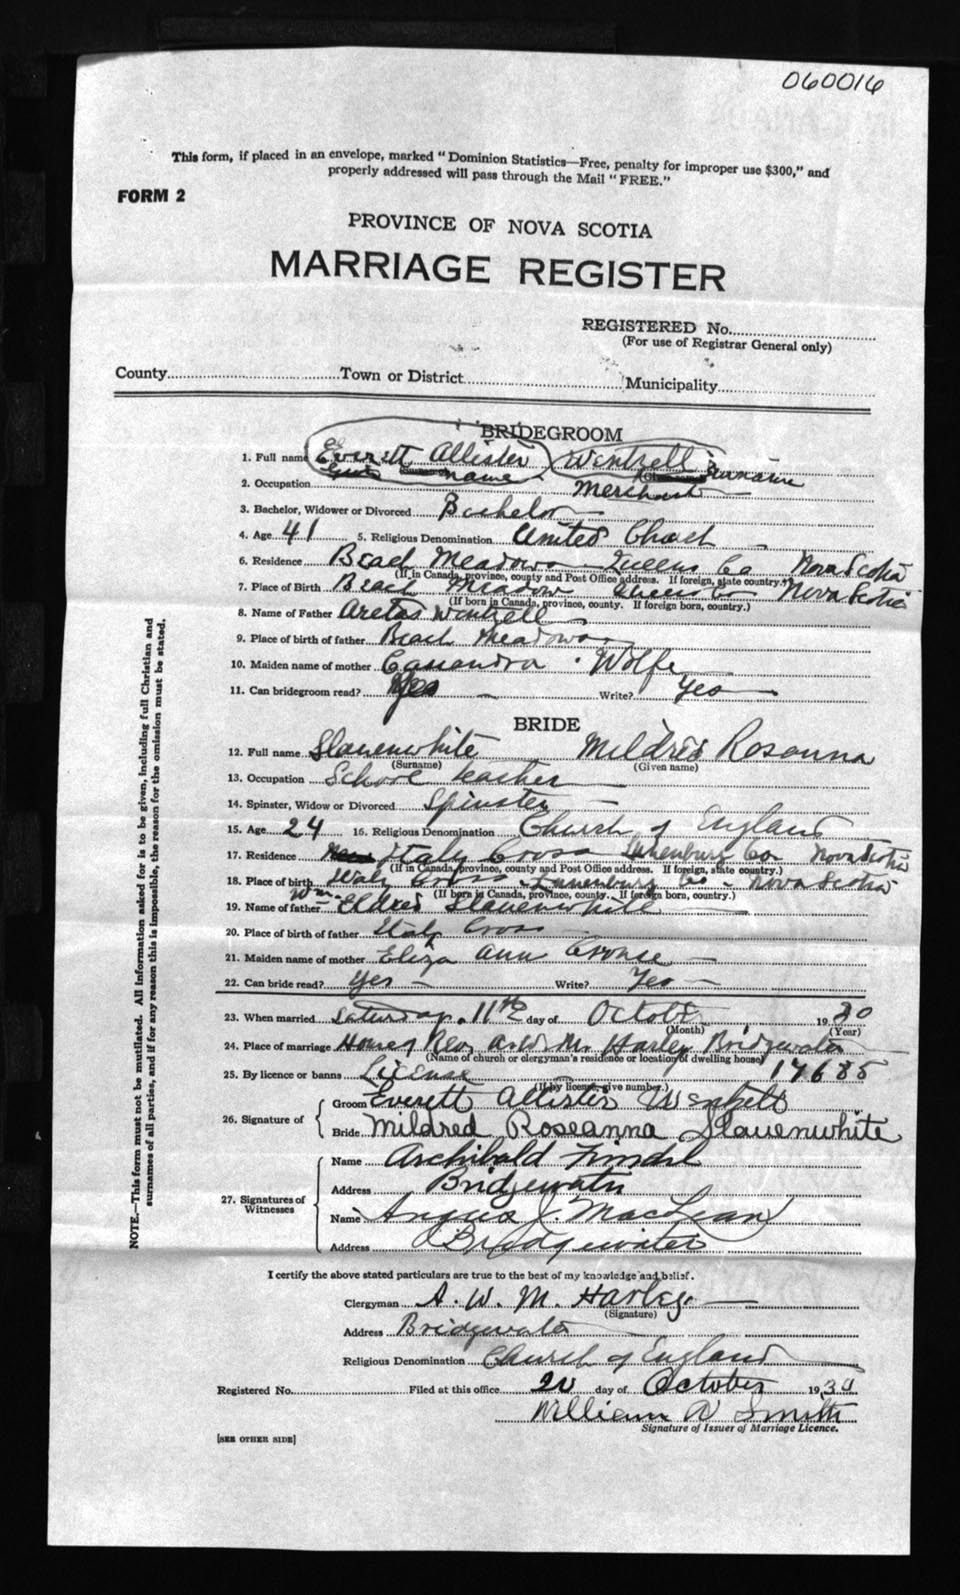 060016
This form, if placed in an envelope, marked "Dominion Statistics—Free, penalty for improper use $300," and
properly addressed will pass through the Mail "FREE."
FORM 2
PROVINCE OF NOVA SCOTIA
MARRIAGE REGISTER
REGISTERED No.
(For use of Registrar General only)
County Town or District Municipality
BRIDEGROOM
1. Full name Everett Allister Wentzell
name Surname
2. Occupation Merchant
3. Bachelor, Widower or Divorced Bachelor
4. Age 41 5. Religious Denomination United Church
6. Residence Beach Meadows Queens Co Nova Scotia
(If in Canada, province, county and Post Office address. If foreign, state country.)
7. Place of Birth Beach Meadow Queens Co Nova Scotia
(If born in Canada, province, county. If foreign born, country.)
8. Name of Father Aretas Wentzell
9. Place of birth of father Beach Meadows
10. Maiden name of mother Cassandra Wolfe
11. Can bridegroom read? Yes Write? Yes
BRIDE
12. Full name Slauenwhite Mildred Rosanna
(Surname) (Given name)
13. Occupation School teacher
14. Spinster, Widow or Divorced Spinster
15. Age 24 16. Religious Denomination Church of England
17. Residence Italy Cross Lunenburg Co Nova Scotia
(If in Canada, province, county and Post Office address. If foreign, state country.)
18. Place of birth Italy Cross Lunenburg Co - Nova Scotia
(If born in Canada, province, county. If foreign born, country.)
19. Name of father Wm. Eldred Slauenwhite
20. Place of birth of father Italy Cross
21. Maiden name of mother Eliza Ann Crouse
22. Can bride read? Yes Write? Yes
23. When married Saturday 11th day of October 1930
(Month) (Year)
24. Place of marriage House, Rev. A.W.M. Harley Bridgewater
(Name of church or clergyman's residence or location of dwelling house)
25. By licence or banns License 17685
(If by licence, give number.)
26. Signature of
Groom Everett Allister Wentzell
Bride Mildred Roseanna Slauenwhite
27. Signatures of Witnesses
Name Archibald
Address Bridgewater
Name Angus J. MacLean
Address Bridgewater
I certify the above stated particulars are true to the best of my knowledge and belief.
Clergyman A. W. M. Harley
(Signature)
Address Bridgewater
Religious Denomination Church of England
Registered No. Filed at this office 20 day of October 1930
William Smith
Signature of Issuer of Marriage Licence.
[SEE OTHER SIDE]
NOTE.—This form must not be mutilated. All information asked for is to be given, including full Christian and
surnames of all parties, and if for any reason this is impossible, the reason for the omission must be stated.